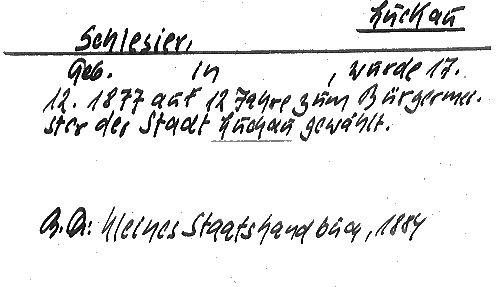 Luckau
Schlesier,
Geb. in , wurde 17.
12. 1877 auf 12 Jahre zum Bürgermei-
ster der Stadt Luckau gewählt.
B.Qu: Kleines Staatshandbuch, 1884